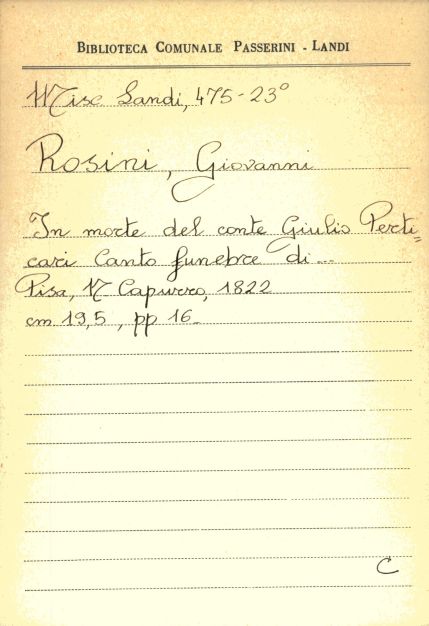 BIBLIOTECA COMUNALE PASSERINI - LANDI
Misc Landi, 475-23°
Rosini, Giovanni
In morte del conte Giulio Perti=
cari Canto funebre di...
Pisa, N Capurro, 1822
cm 19,5, pp 16.
C